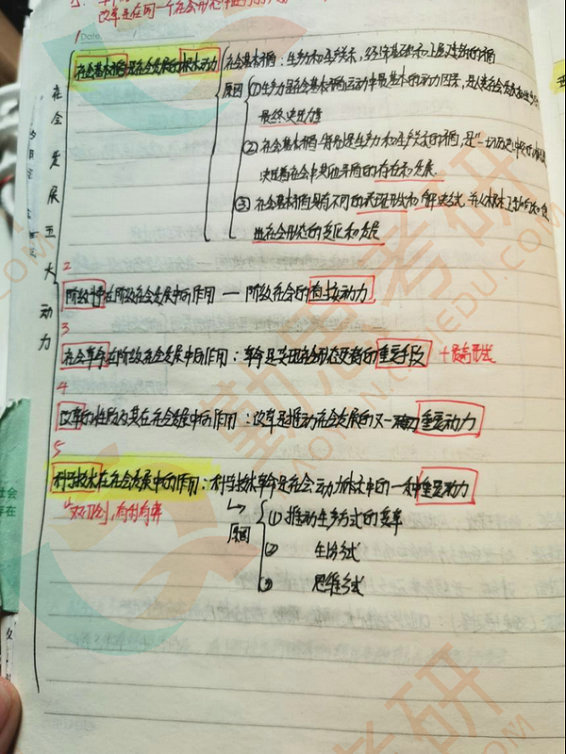 改革是在同一个社会形态
1
社会基本矛盾是社会发展的根本动力
社会基本矛盾：生产力和生产关系，经济基础和上层建筑的矛盾
原因
(1) 生产力是社会基本矛盾运动中最基本的动力因素，是人类社会发展
最终决定力量
(2) 社会基本矛盾特别是生产力和生产关系的矛盾，是"一切历史冲突的
决定着社会中其他矛盾的存在和发展.
(3) 社会基本矛盾具有不同的表现形式和解决方式，并从根本上
社会形态的变化和发展
社会发展五大动力
2
阶级斗争在阶级社会发展中的作用 — 阶级社会的直接动力
3
社会革命在阶级社会发展中的作用：革命是实现社会形态更替的重要手段 +最高形式
4
改革的性质及其在社会发展中的作用：改革是推动社会发展的又一 重要动力
5
科学技术在社会发展中的作用：科学技术革命是社会动力体系中的一种重要动力
"双刃剑，有利有弊
原因
(1) 推动生产方式的变革
(2) 生活方式
(3) 思维方式
社会
存在
勤思考研